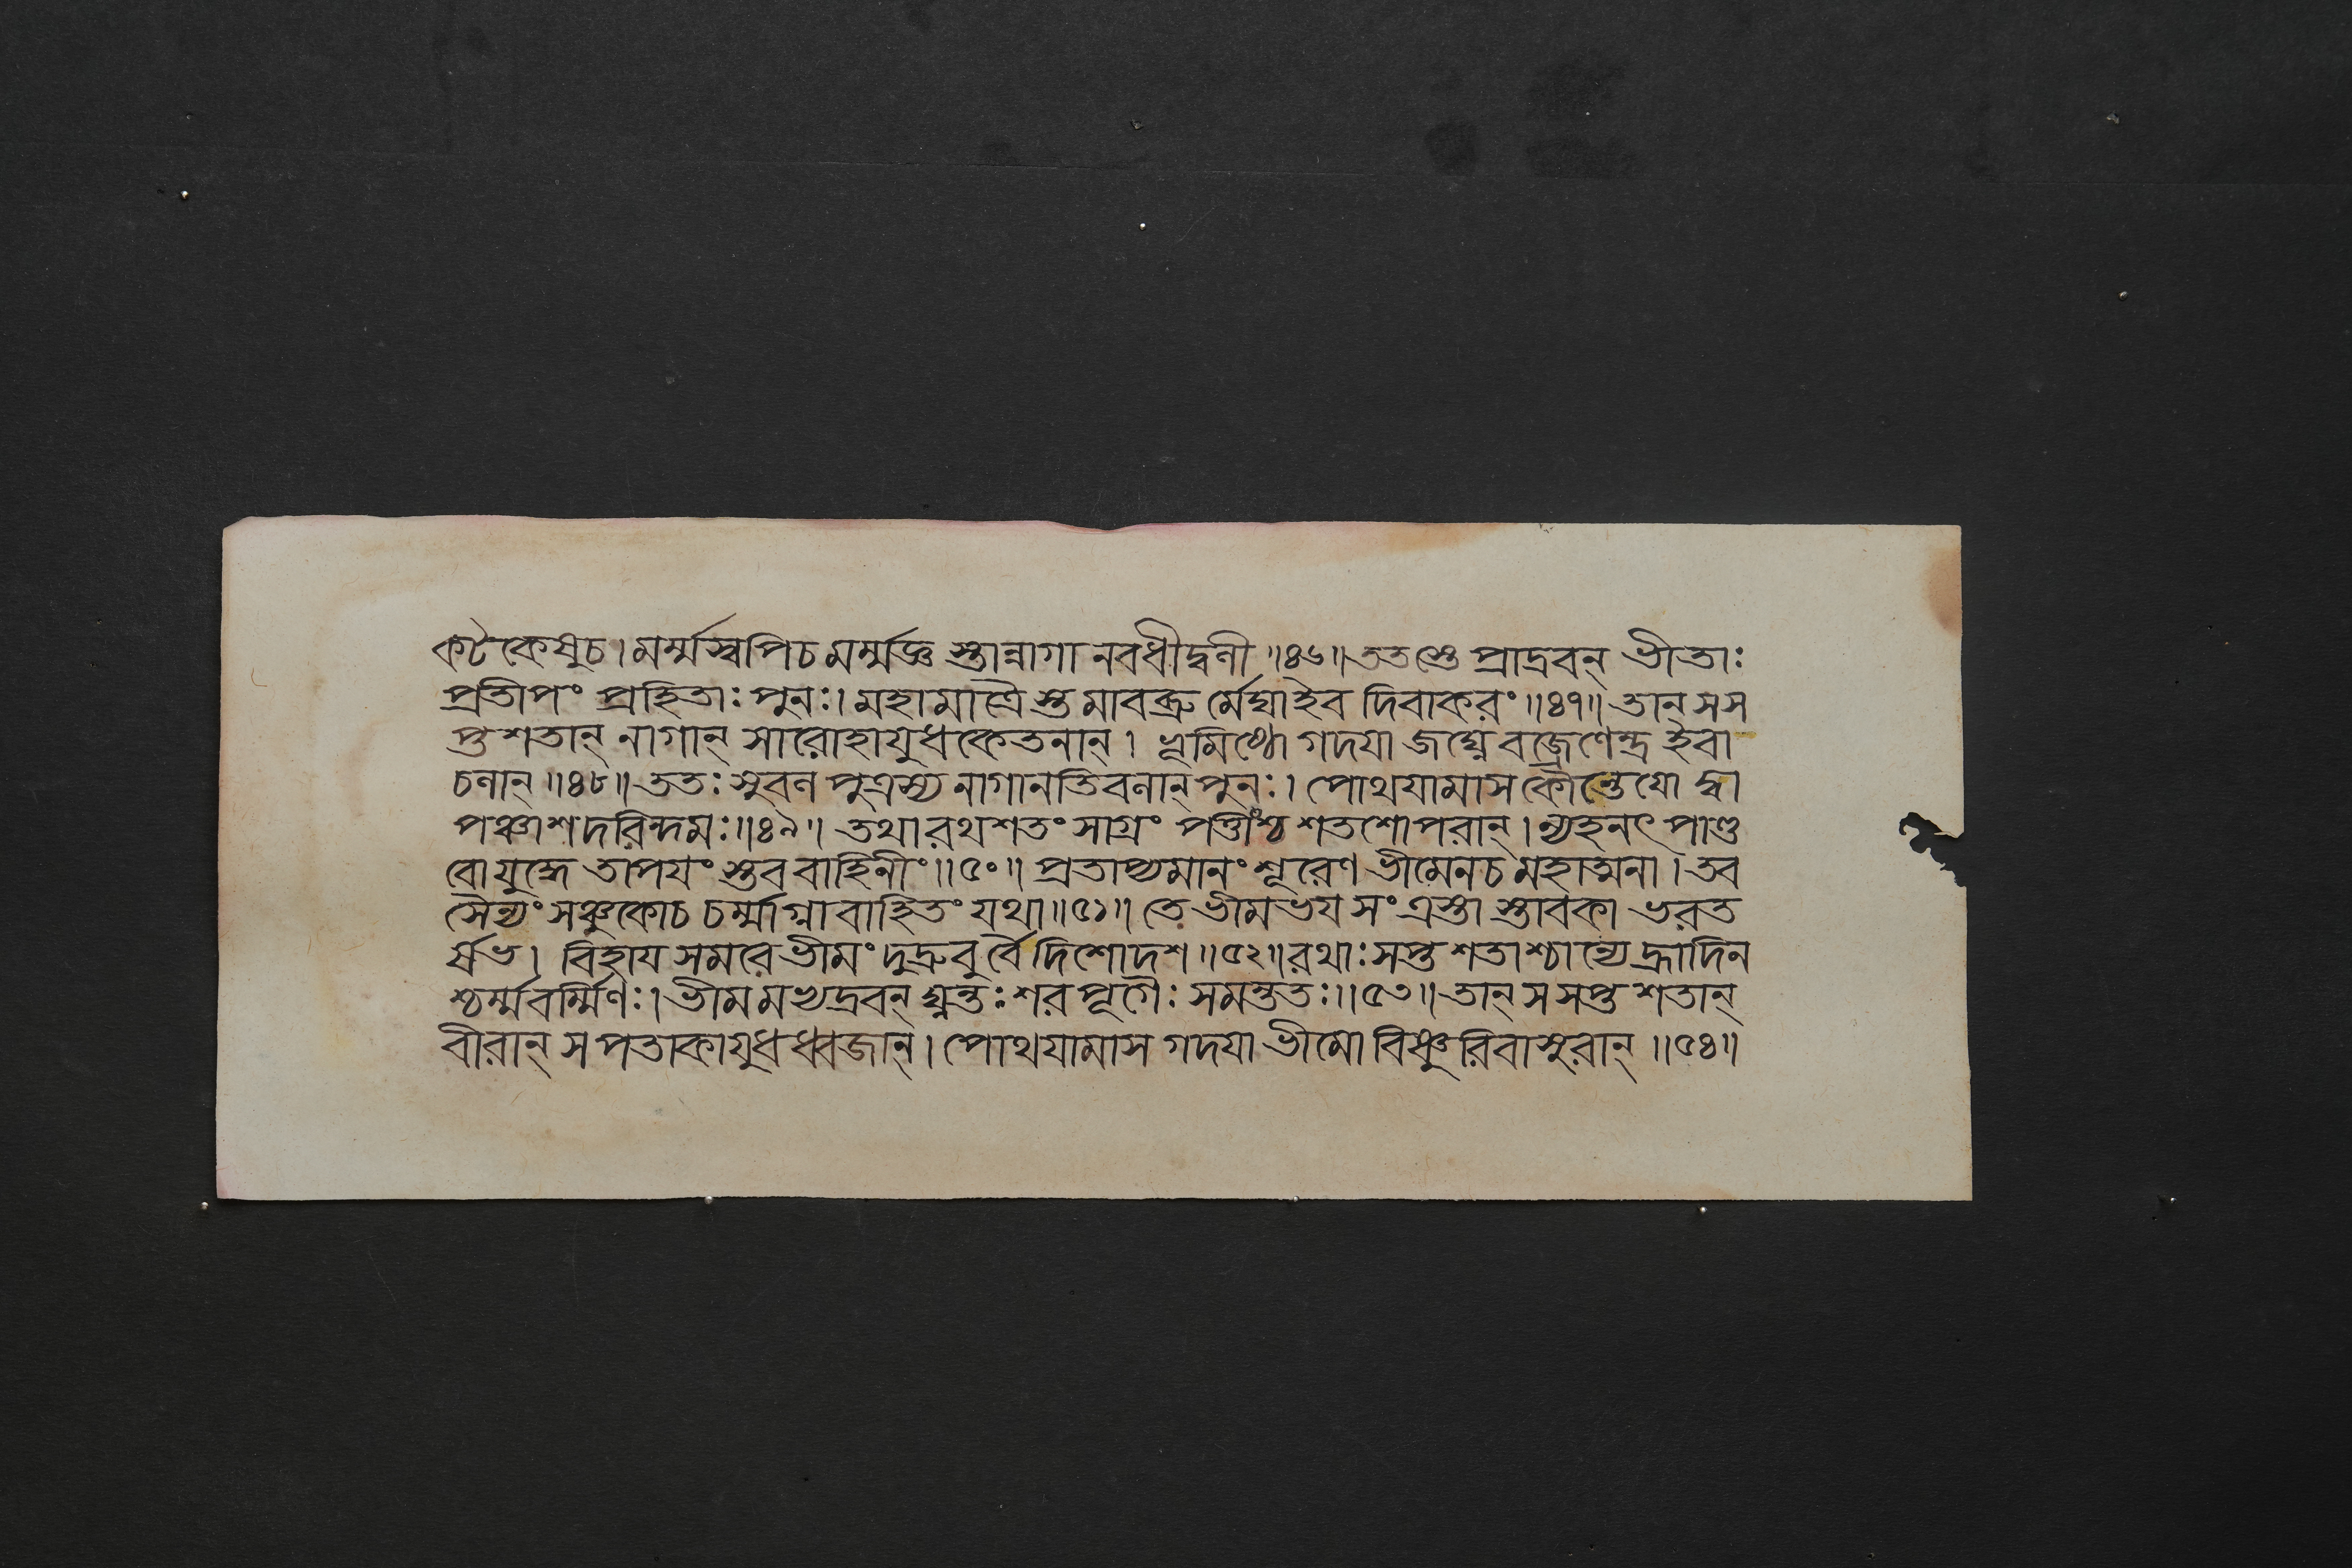 কটৈকেষুচ।মর্ম্মস্বপিচমর্ম্মজ্ঞ স্তান্নাগা নবধীদ্বলী॥৪৬॥ততস্তে প্রাদ্রবন্ ভীতাঃ
প্রতীপং প্রহিতাঃ পুনঃ।মহামাত্রৈ স্তমাবব্রু র্মেঘাইব দিবাকরং॥৪৭॥ তান্ সস
প্ত শতান্ নাগান্ সারোহাযুধকেতনান্। ভূমিষ্ঠো গদযা জঘ্নে বজ্রেণেন্দ্র ইবা
চলান্॥৪৮॥ ততঃ সুবল পুত্রস্য নাগানতিবলান্ পুনঃ। পোথযামাস কৌন্তেযো দ্বা
পঞ্চাশদরিন্দমঃ॥৪৯॥ তথা রথশতং সাগ্রং পত্তীংশ্চ শতশোপরান্। ন্যহনৎ পাণ্ড
বো যুদ্ধে তাপযং স্তব বাহিনীং॥৫০॥ প্রতাপ্যমানং শূরেণ ভীমেনচ মহাত্মনা। তব
সৈন্যং সঞ্চুকোচ চর্ম্মাগ্নাবাহিতং যথা॥৫১॥ তে ভীমভয সংত্রস্তা স্তাবকা ভরত
র্ষভ। বিহায সমরে ভীমং দুদ্রুবু র্বৈ দিশোদশ॥৫২॥রথাঃ সপ্ত শতাশ্চান্যে হ্রাদিন
শ্চর্ম্মবর্ম্মিণঃ। ভীমমভ্যদ্রবন্ ঘ্নন্তঃ শর পূগৈঃ সমন্ততঃ॥৫৩॥ তান্ স সপ্ত শতান্
বীরান্ স পতাকাযুধ ধ্বজান্। পোথযামাস গদযা ভীমো বিষ্ণু রিবাসুরান্॥৫৪॥